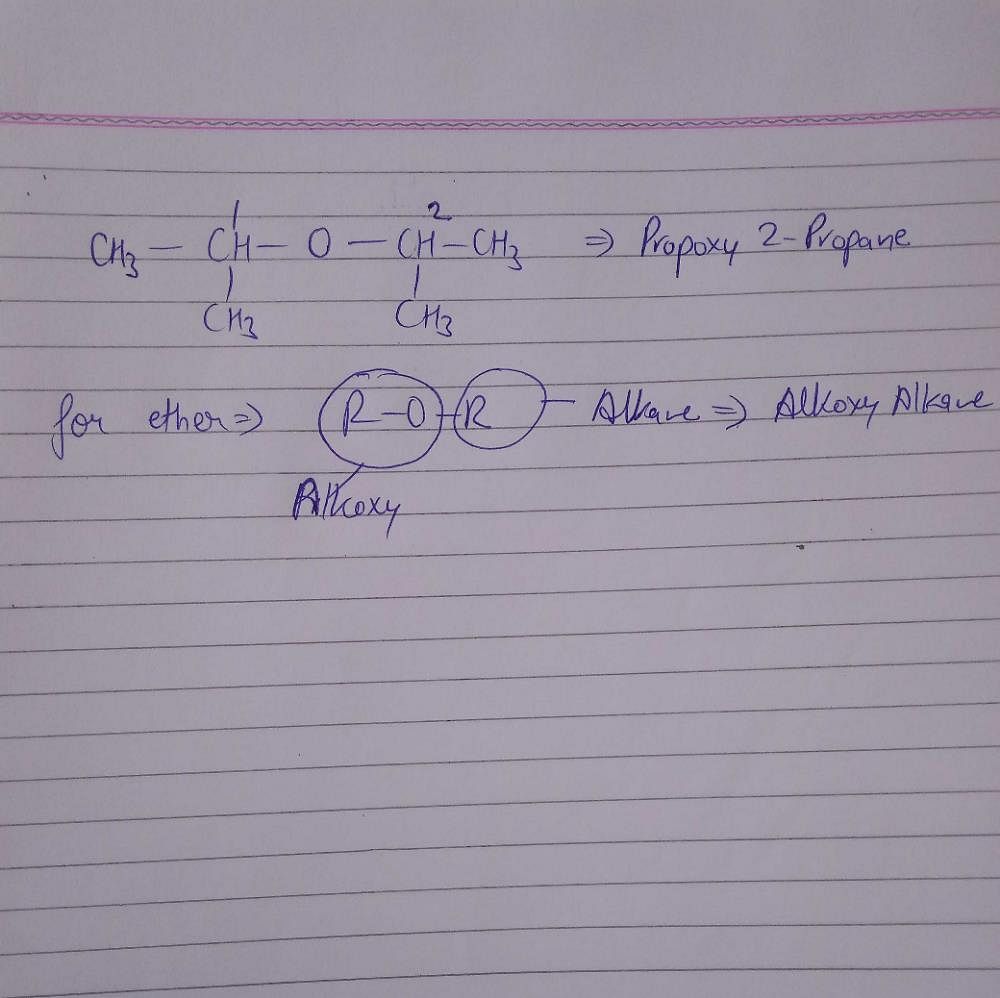 2
CH3 — CH — O — CH — CH3 ⇒ Propoxy 2-Propane
CH3 CH3
for ether ⇒ R–O–R – Alkane ⇒ Alkoxy Alkane
Alkoxy